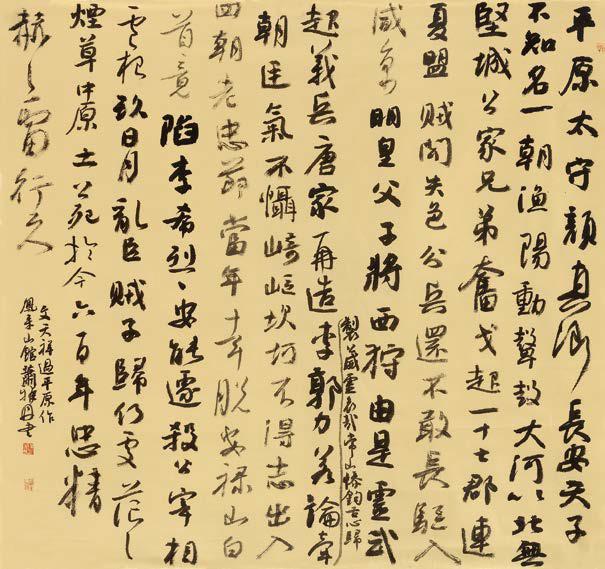 平原太守顏真卿長安天子
不知名一朝漁陽動鼙鼓大河以北無
堅城公家兄弟奮戈起一十七郡連
夏盟賊聞失色分兵還不敢長驅入
咸京明皇父子將西狩由是靈武
起義兵唐家再造李郭力若論牽
製公威靈哀哉常山慘鉤舌心歸
朝廷氣不懾崎嶇坎坷不得志出入
四朝老忠節當年幸脫安祿山白
首竟陷李希烈々安能遽殺公宰相
盧杞欺日月亂臣賊子歸何處茫々
煙草中原土公死於今六百年忠精
赫々雷行天
文天祥過平原作
鳳來山館蕭書